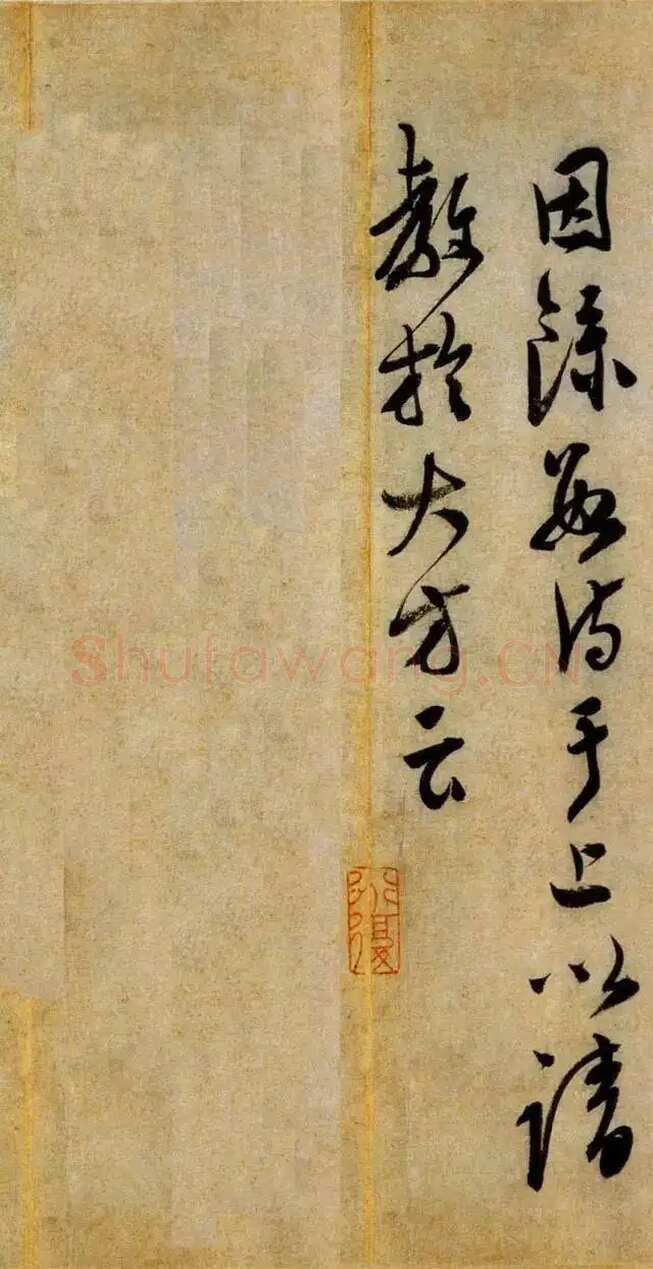 因錄數詩于上以請
教於大方云
Shufawang.CN